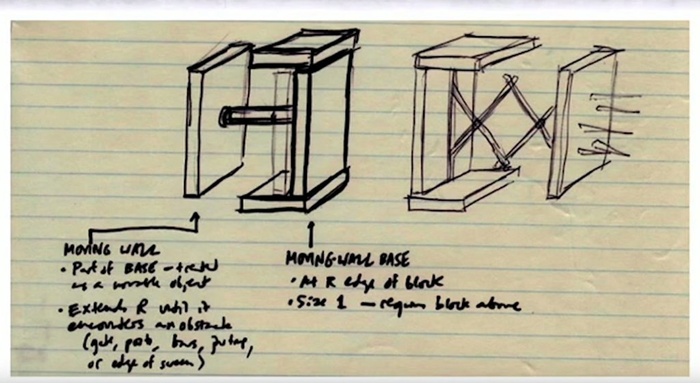 MOVING WALL
• Part of BASE - treated
as a movable object
• Extends R until it
encounters an obstacle
(gate, posts,
or edge of screen)
MOVING WALL BASE
• At R edge of block
• Size 1 - requires block above